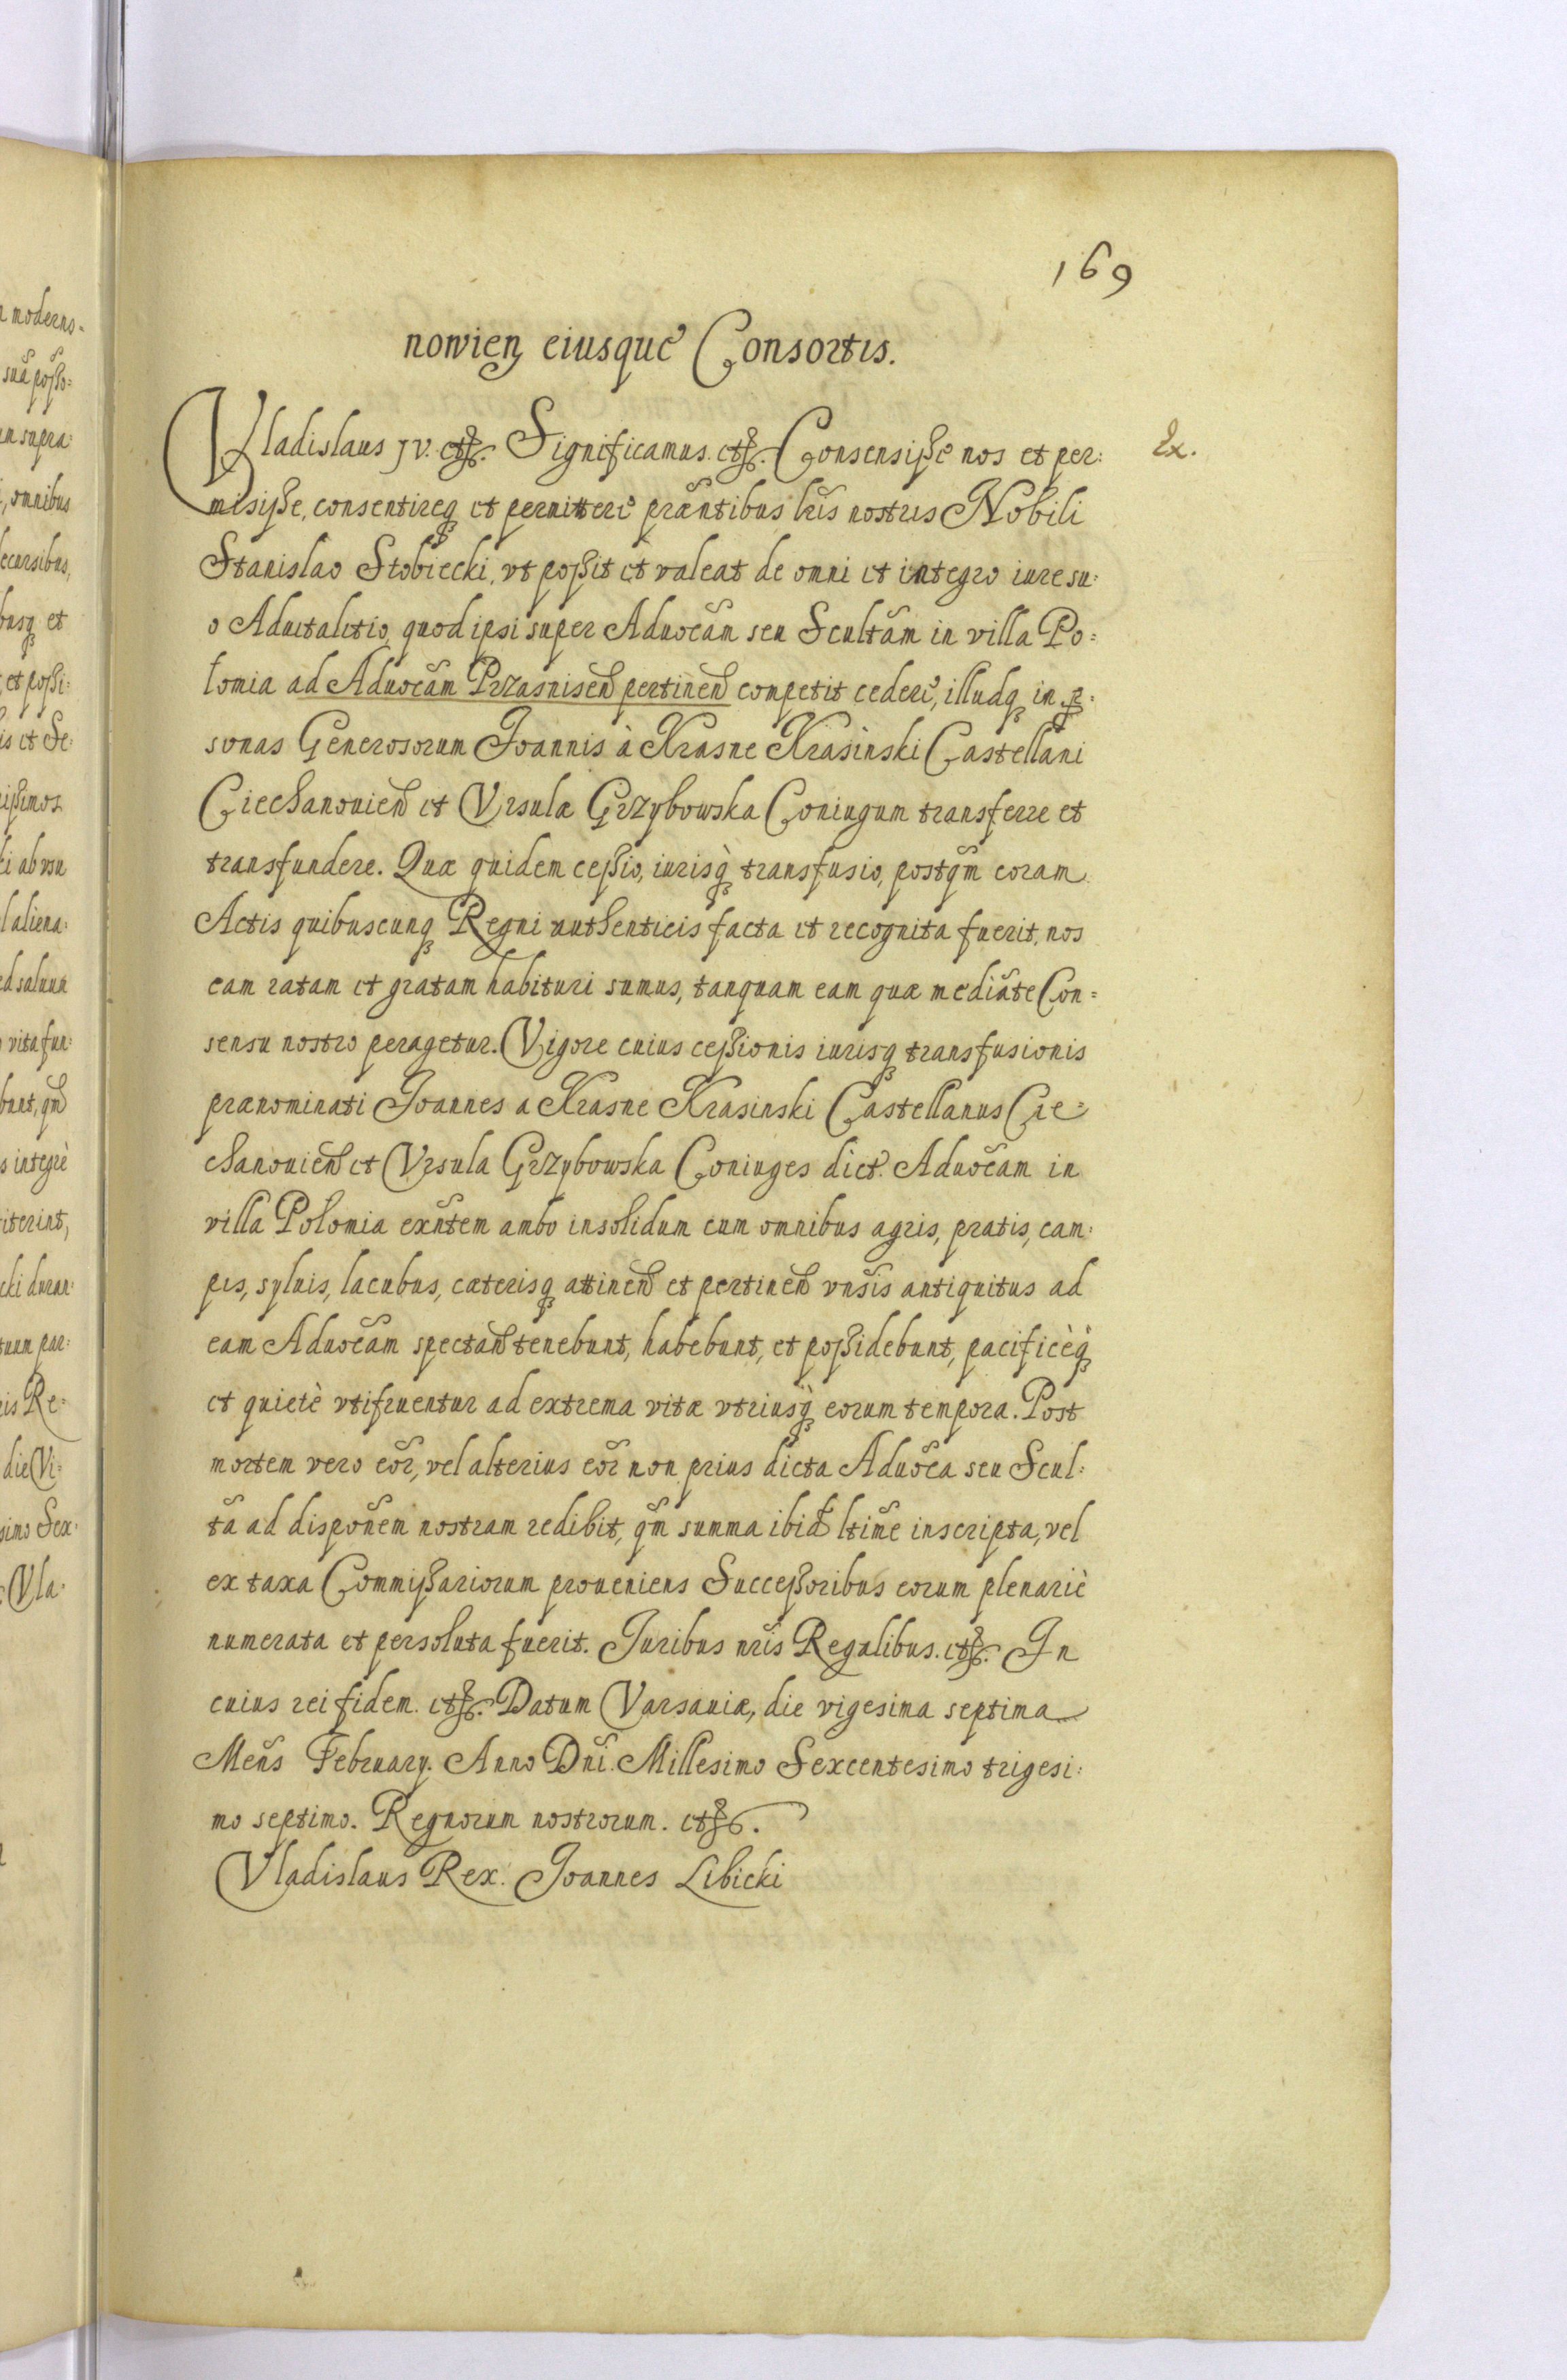 169
nowień eiusque Consortis.
Vladislaus IV. etc. Significamus. etc. Consensiße nos et per:
misiße, consentireq et permittere præntibus lris nostris Nobili
Stanislao Stobiecki, vt poßit et valeat de omni et integro iure su:
o Aduitalitio, quod ipsi super Aduocãm seu Scultãm in villa Po:
lomia ad Aduocãm Przasnisen pertinen competit cedere, illudq in p:
sonas Generosorum Joannis à Krasne Krasinski Castellani
Ciechanouien et Vrsulæ Grzybowska Coniugum transferre et
transfundere. Quæ quidem ceßio, iurisq transfusio, postqm coram
Actis quibuscunq Regni authenticis facta et recognita fuerit, nos
eam ratam et gratam habituri sumus, tanquam eam quæ mediãte Con=
sensu nostro peragetur. Vigore cuius ceßionis iurisq transfusionis
prænominati Joannes a Krasne Krasinski Castellanus Cie=
chanouien et Vrsula Grzybowska Coniuges dict. Aduocãm in
villa Polomia exñtem ambo insolidum cum omnibus agris, pratis, cam:
pis, syluis, lacubus, cæterisq attinen et pertinen vnsis antiquitus ad
eam Aduocãm spectan tenebunt, habebunt, et poßidebunt, pacificèq
et quietè vtifruentur ad extrema vitæ vtriusq eorum tempora. Post
mortem vero eor, vel alterius eor non prius dicta Aduoca seu Scul:
tã ad disponem nostram redibit, qm summa ibid ltime inscripta, vel
ex taxa Commißariorum proueniens Succeßoribus eorum plenariè
numerata et persoluta fuerit. Juribus nris Regalibus. etc. In
cuius rei fidem. etc. Datum Varsauiæ, die vigesima septima
Mens February. Anno Dni. Millesimo Sexcentesimo trigesi:
mo septimo. Regnorum nostrorum. etc.
Vladislaus Rex. Joannes Libicki
Ex.
moderno-
suã poßo=
supra:
, omnibus
ecursibus,
busq et
et poßi:
is et Se:
ißimos
ki ab vsu
l aliena:
ed saluum
vita fun:
bunt, qm
s integrè
iterint,
cki duran:
tuum par:
is Re:
die Vi=
simo Sex:
Vla: